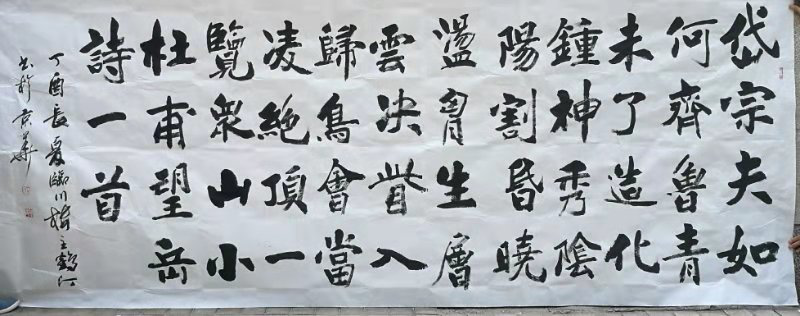 岱宗夫如
何齊魯青
未了造化
鍾神秀陰
陽割昏曉
盪胷生層
雲决眥入
歸鳥會當
凌絶頂一
覽衆山小
杜甫望岳
詩一首
丁酉長夏臨川樓主鶴江
書於京華